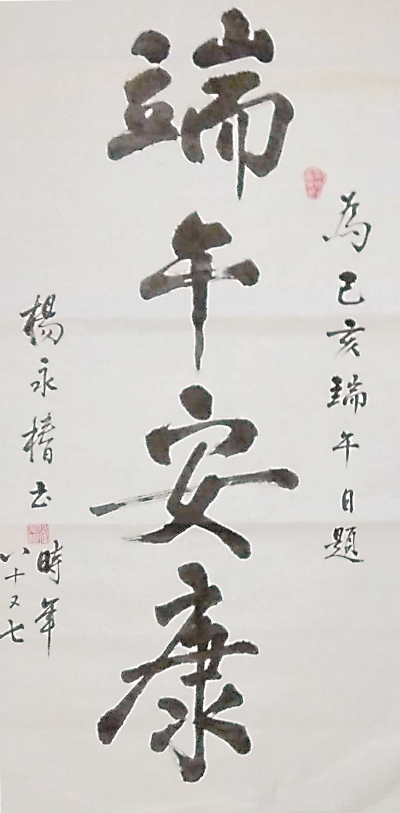 為己亥端午日題
端午安康
楊永椿书
時年
八十又七